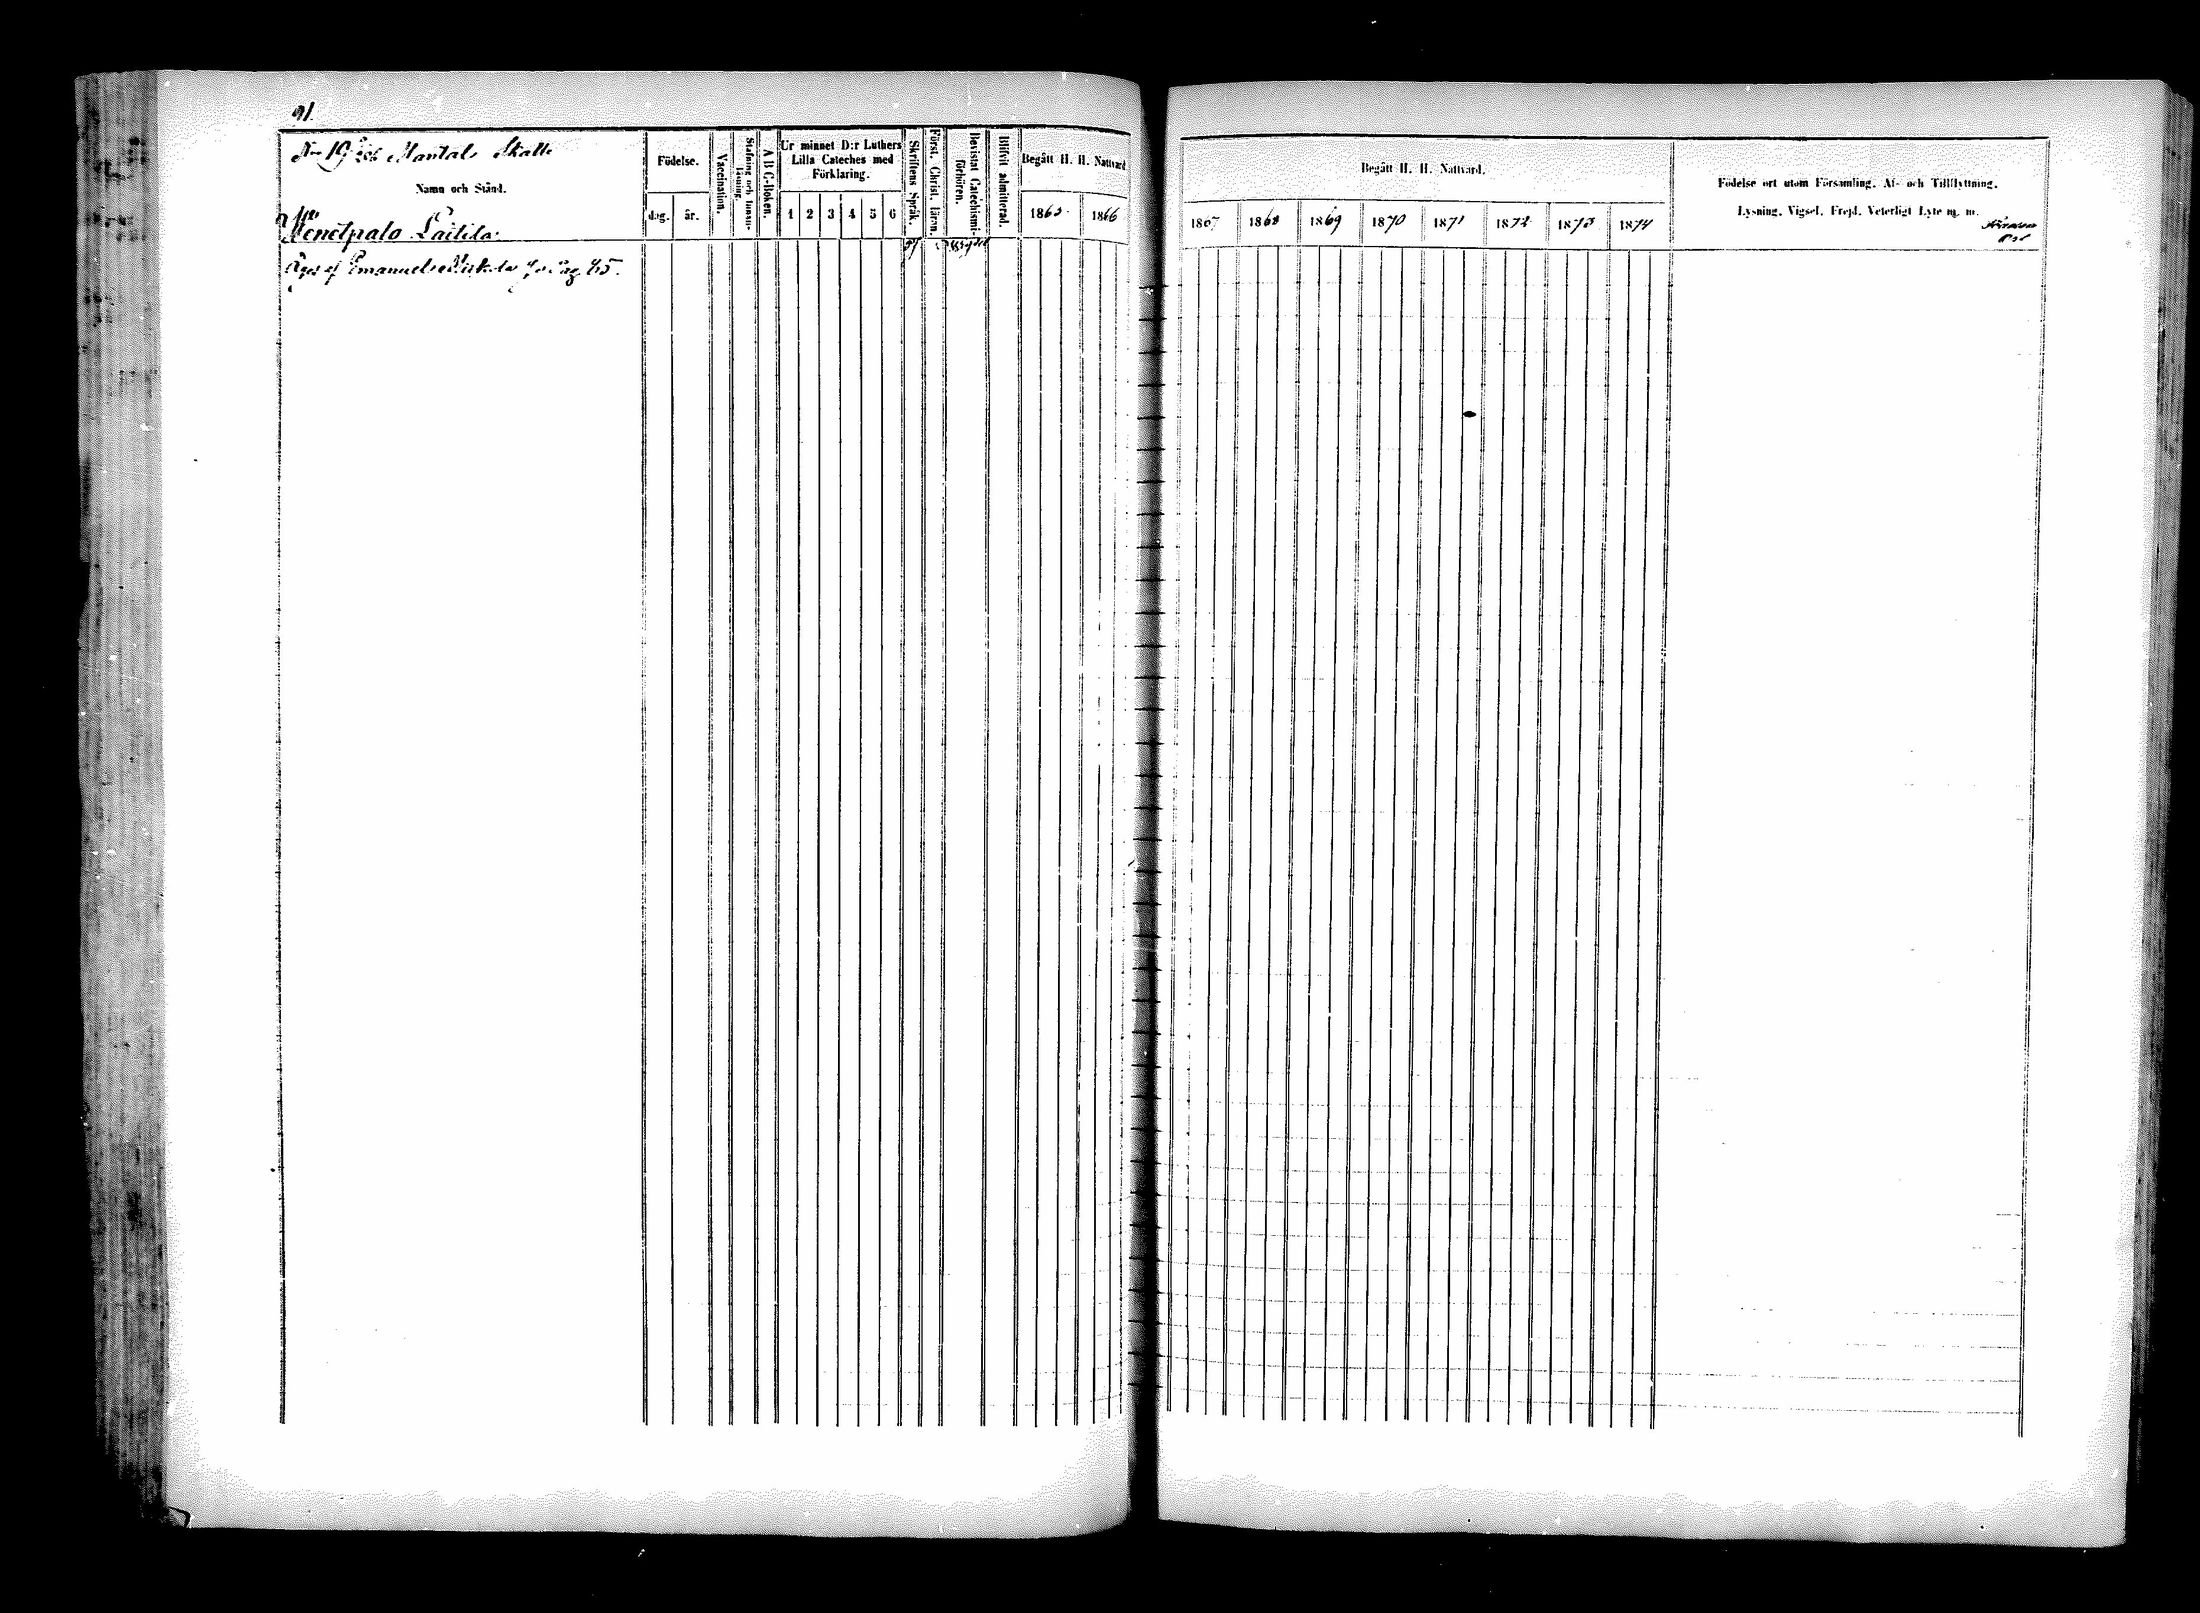 91.
No 19 Mantal Skatte
Namn och Stånd.
Wenetpalo Laitila
Äges af Emanuel Niskala Pag. 85.
Födelse.
dag. år.
Vaccination.
Stafning och Innanläsning.
A B C-Boken.
Ur minnet D:r Luthers
Lilla Cateches med
Förklaring.
1 2 3 4 5 6
Skriftens Språk.
Först. Christ. läran.
Bevistat Catechismi-
förhören.
Blifvit admitterad.
Begått H. H. Nattvard
1865 1866
Begått H. H. Nattvard.
1867 1868 1869 1870 1871 1872 1873 1874
Födelse ort utom Församling. Af- och Tillflyttning.
Lysning. Vigsel. Frejd. Veterligt Lyte m. m.